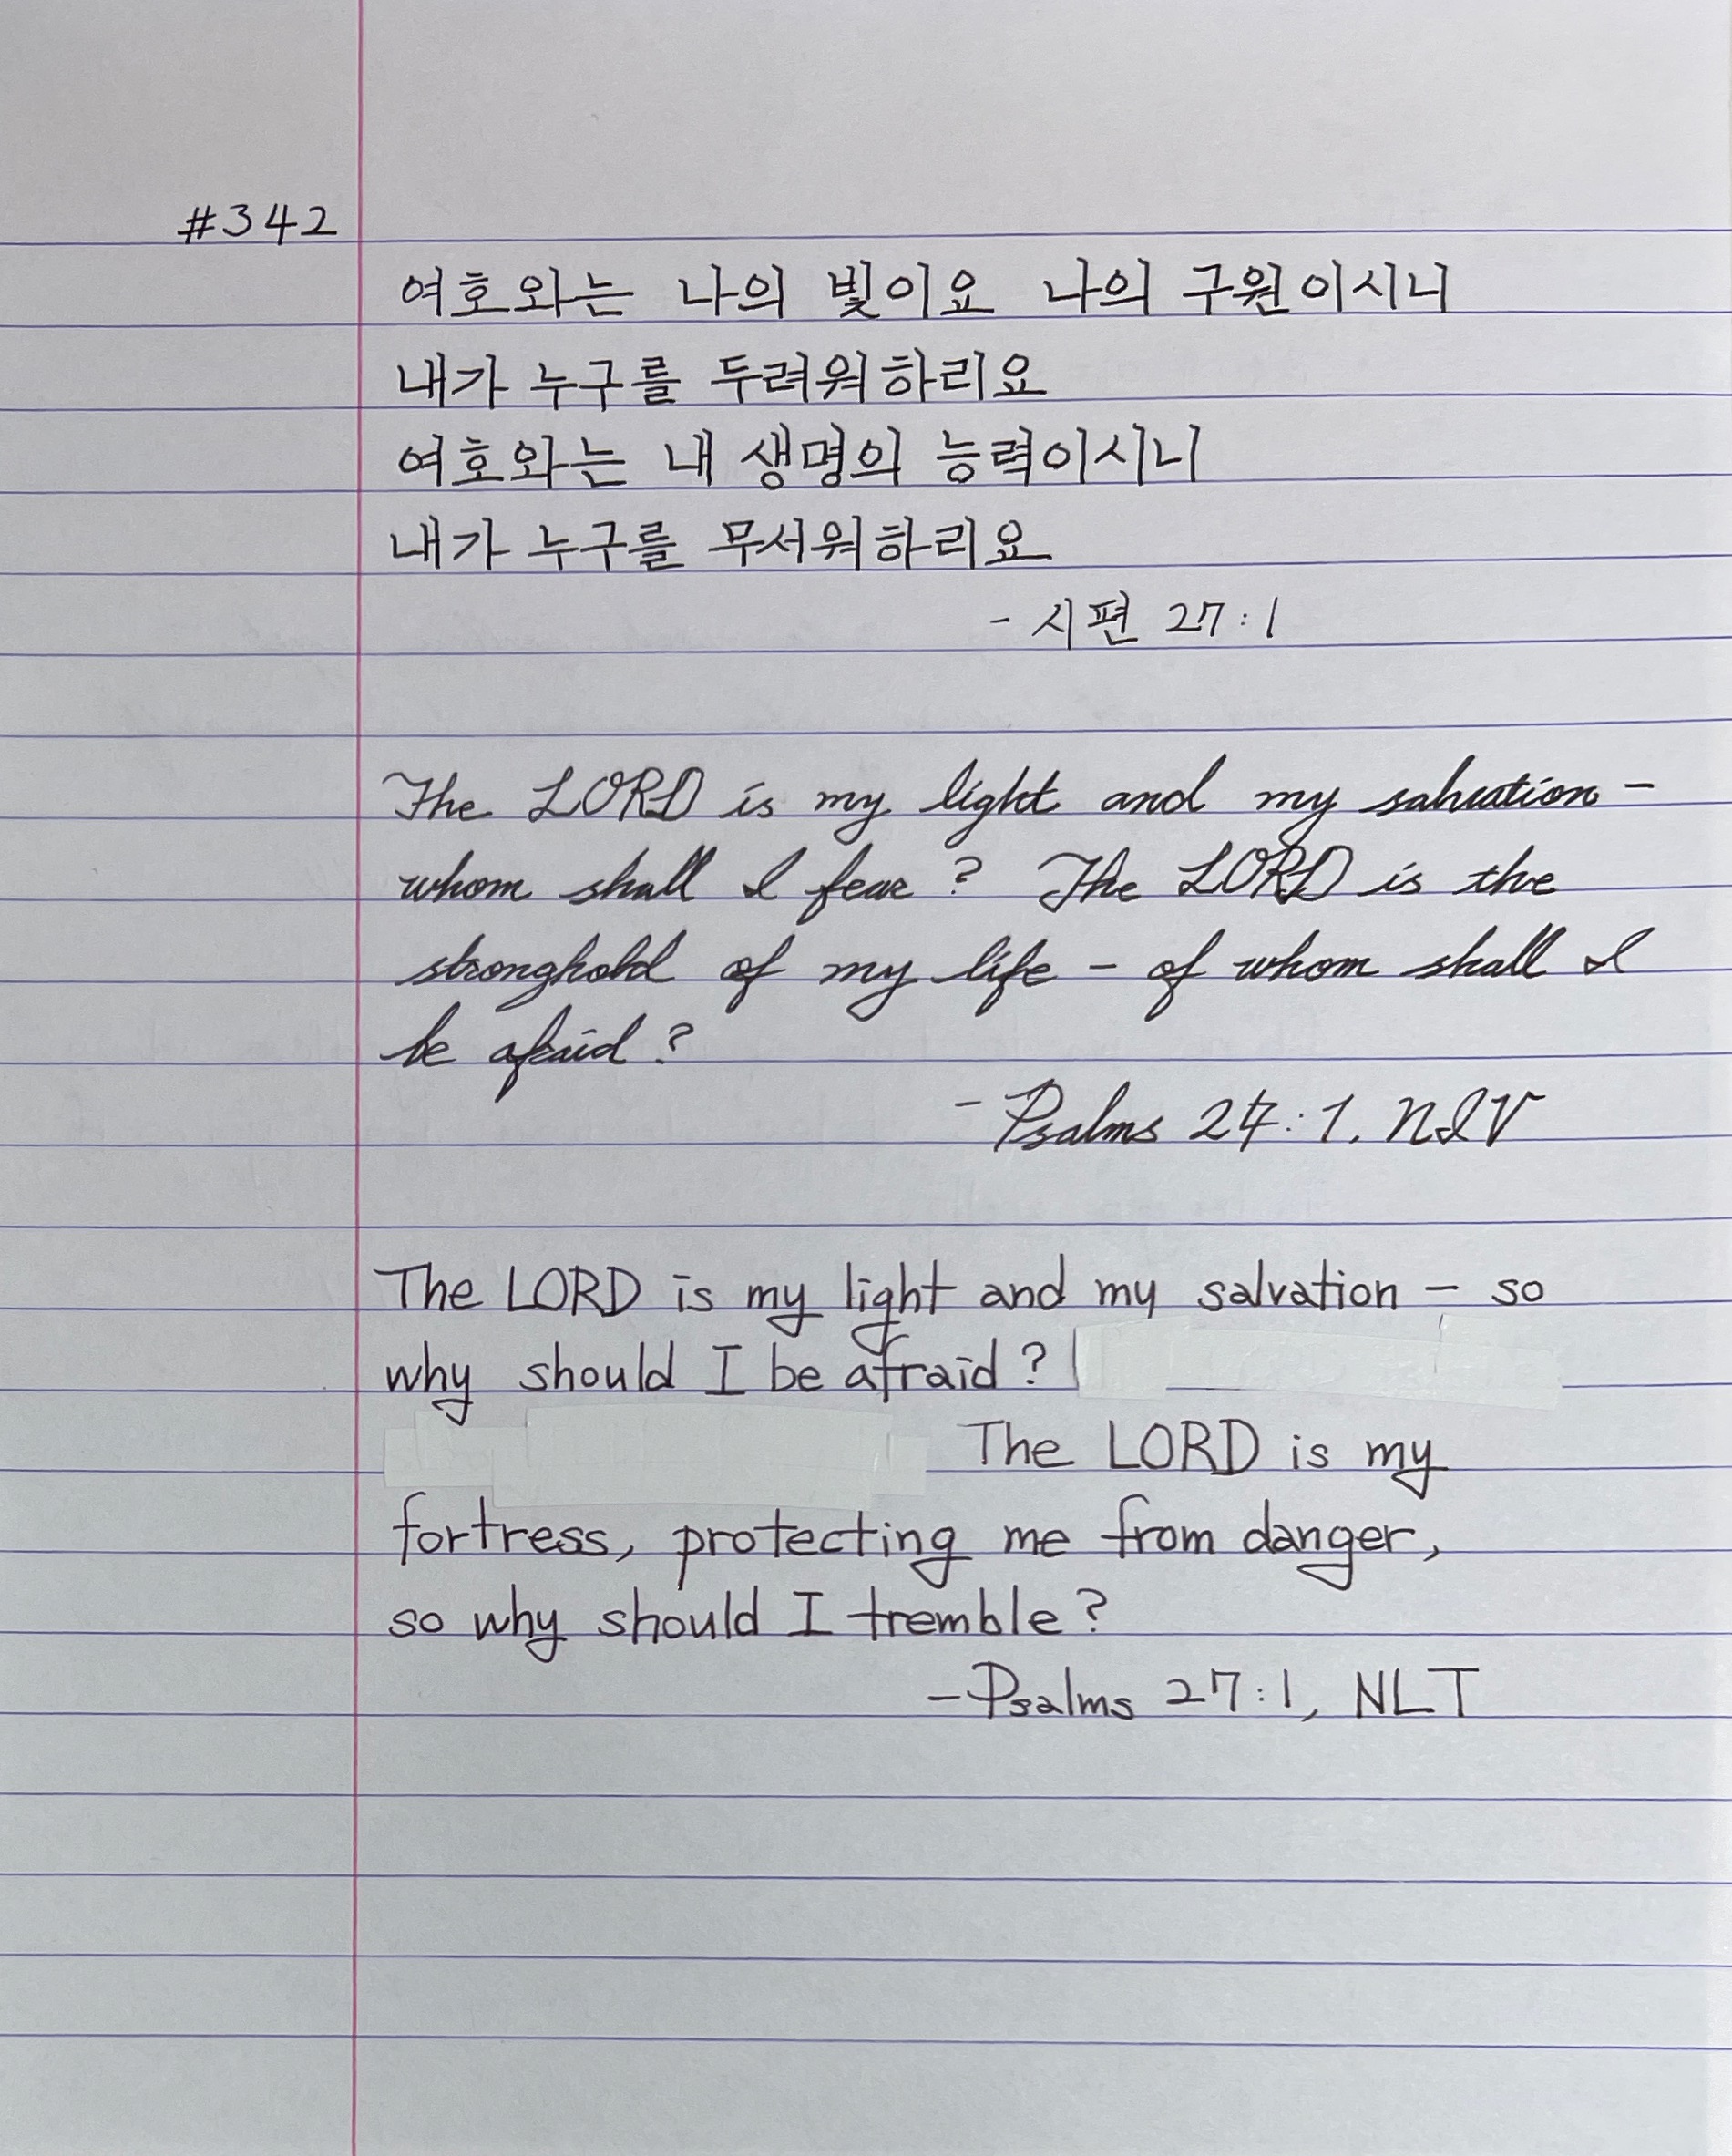 #342
여호와는 나의 빛이요 나의 구원이시니
내가 누구를 두려워하리요
여호와는 내 생명의 능력이시니
내가 누구를 무서워하리요
- 시편 27:1
The LORD is my light and my salvation -
whom shall I fear? The LORD is the
stronghold of my life - of whom shall I
be afraid?
- Psalms 27:1, NIV
The LORD is my light and my salvation - so
why should I be afraid?
The LORD is my
fortress, protecting me from danger,
so why should I tremble?
- Psalms 27:1, NLT